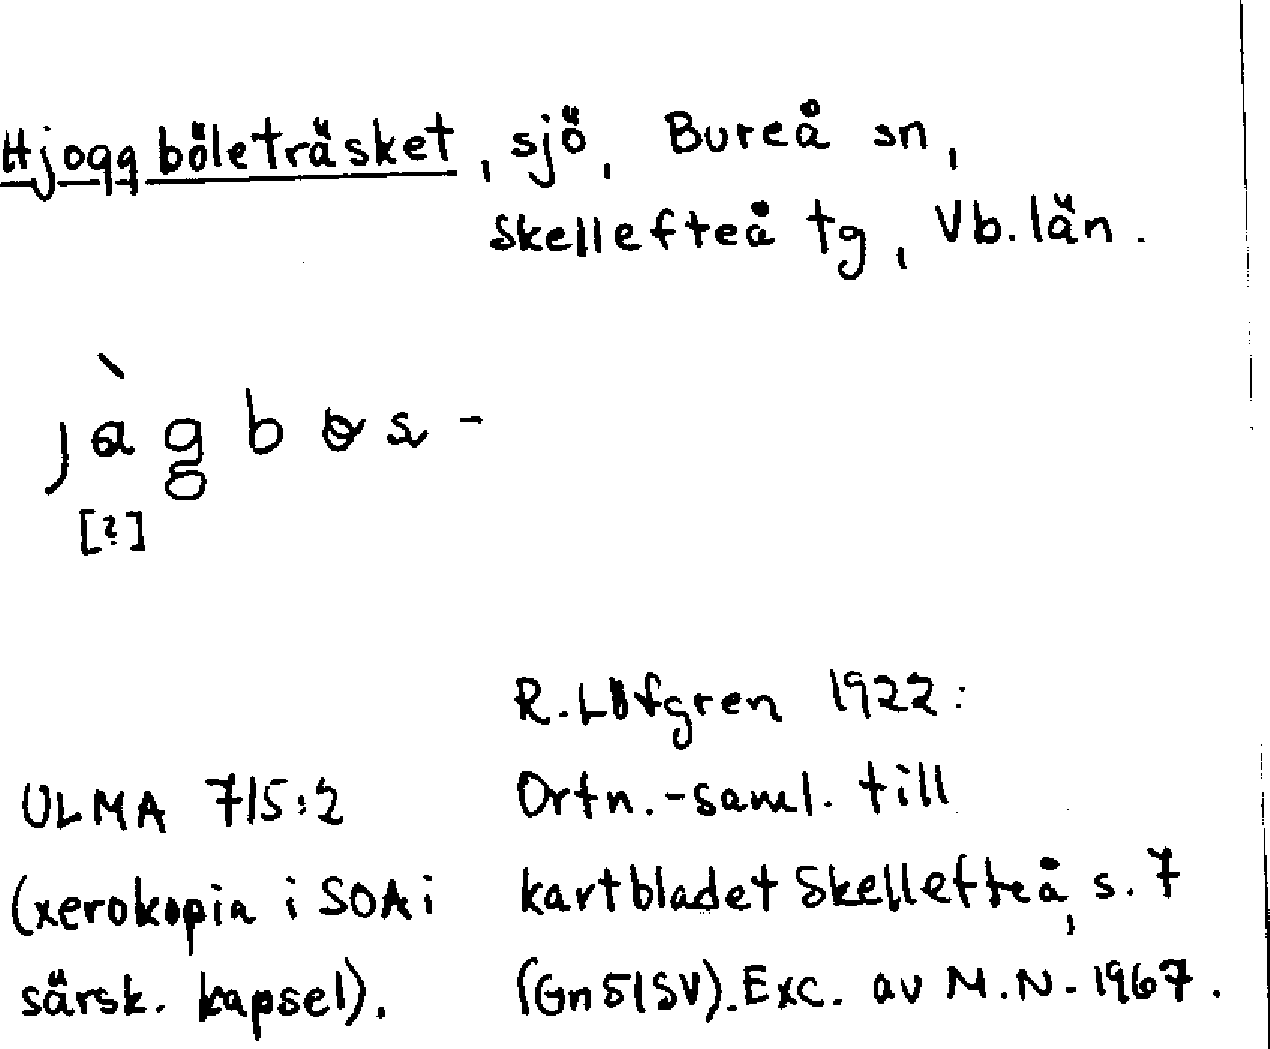 Hjoggböleträsket, sjö, Bureå sn,
Skellefteå tg, Vb. län.
[?]
R. Löfgren 1922:
ULMA 715:2 Ortn.-saml. till
(xerokopia i SOA i kartbladet Skellefteå, s. 7
särsk. kapsel). (Gn 51SV). Exc. av M.N. 1967.